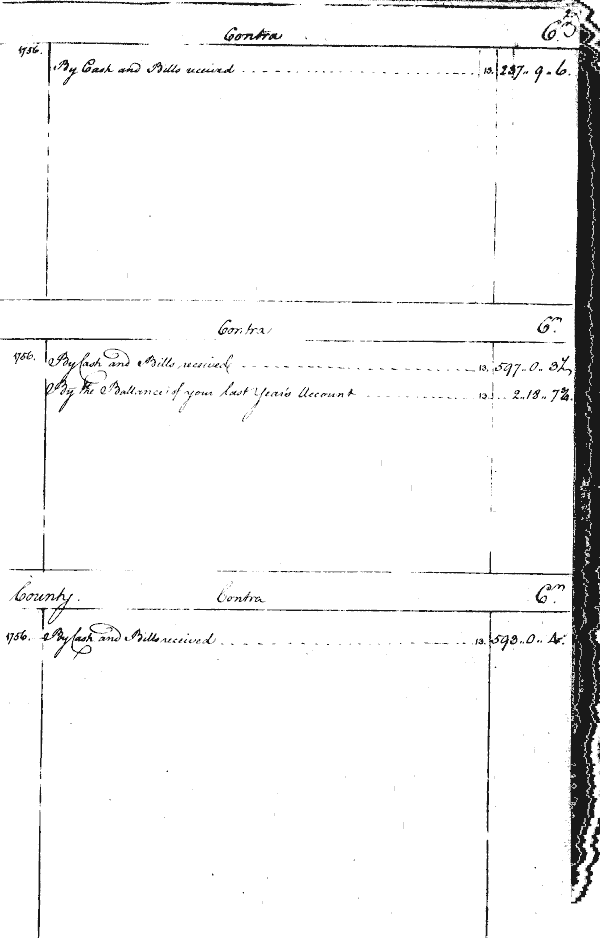 Contra Cr
1756.
By Cash and Bills received 13. 237.. 9.. 6.
Contra Cr
1756. By Cash and Bills received 13. 597.. 0.. 3½
By the Ballance of your last Year's Account 13. 2.. 18.. 7¾
County. Contra Cr
1756. By Cash and Bills received 13. 593.. 0.. 4.